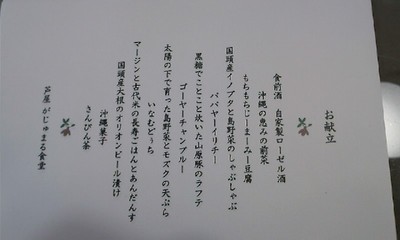 お献立
食前酒 自家製ローゼル酒
沖縄の恵みの前菜
もちもちじーまーみー豆腐
国頭産イノブタと島野菜のしゃぶしゃぶ
パパヤーイリチー
黒糖でことこと炊いた山原豚のラフテ
ゴーヤーチャンプルー
太陽の下で育った島野菜とモズクの天ぷら
いなむどぅち
マージンと古代米の長寿ごはんとあんだんすー
国頭産大根のオリオンビール漬け
沖縄菓子
さんぴん茶
芦屋がじゅまる食堂